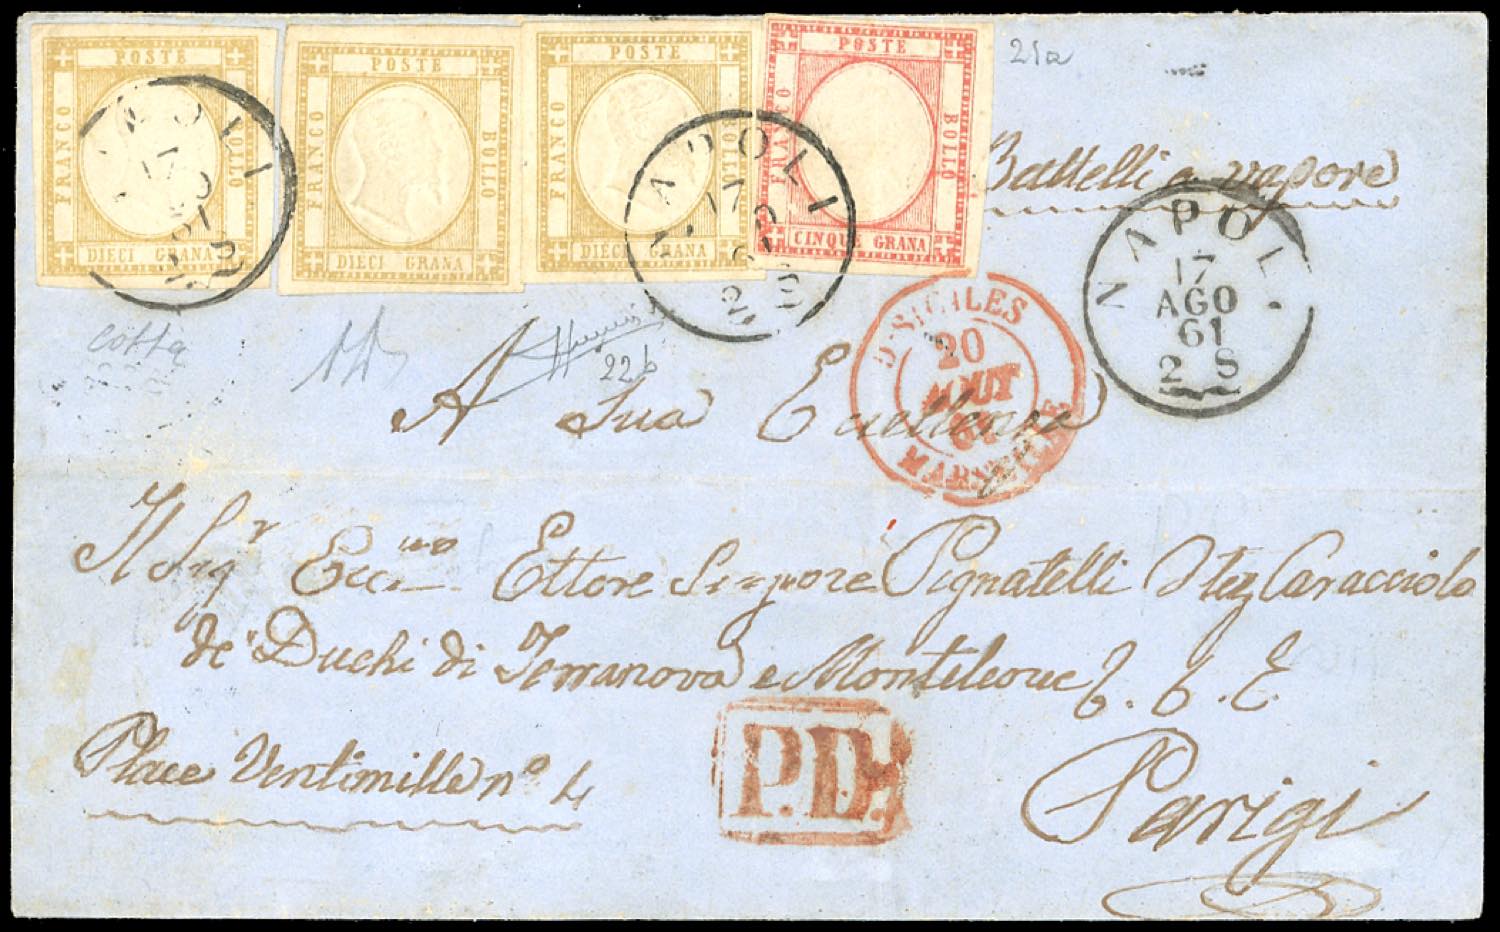 POSTE
FRANCO
BOLLO
DIECI GRANA
POSTE
FRANCO
BOLLO
DIECI GRANA
POSTE
FRANCO
BOLLO
DIECI GRANA
POSTE
FRANCO
BOLLO
CINQUE GRANA
21a
Battelli a vapore
NAPOLI
17
NAPOLI
17
NAPOL
17
AGO
61
2 S
cotta
22b
20
AOUT
61
A Sua Eccellenza
Il Sigr Eccmo Ettore Signore Pignatelli Caracciolo
de' Duchi di Terranova e Monteleone
Place Ventimille no 4
P.D.
Parigi